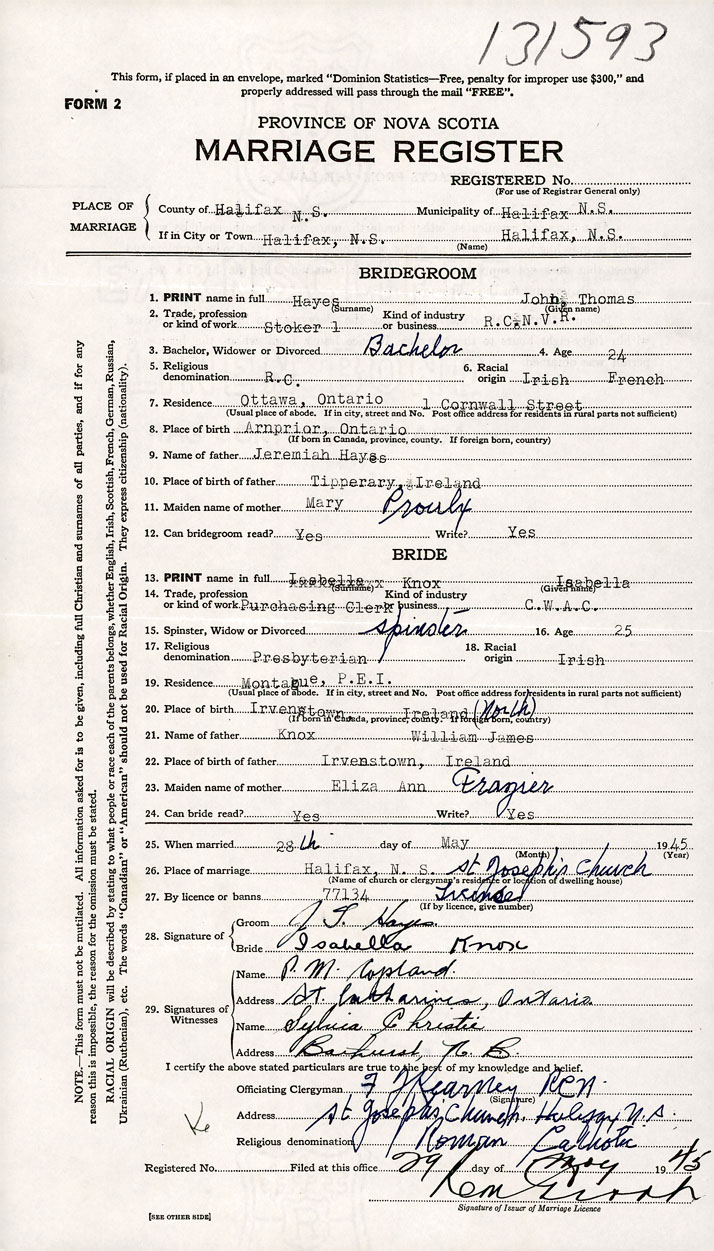 131593
This form, if placed in an envelope, marked “Dominion Statistics—Free, penalty for improper use $300,” and
properly addressed will pass through the mail “FREE”.
FORM 2
PROVINCE OF NOVA SCOTIA
MARRIAGE REGISTER
REGISTERED No.
(For use of Registrar General only)
PLACE OF MARRIAGE
County of Halifax N.S. Municipality of Halifax N.S.
If in City or Town Halifax, N.S. Halifax, N.S.
(Name)
BRIDEGROOM
1. PRINT name in full Hayes John, Thomas
(Surname) (Given name)
2. Trade, profession or kind of work Stoker 1 Kind of industry or business R.C.N.V.R.
3. Bachelor, Widower or Divorced Bachelor 4. Age 24
5. Religious denomination R.C. 6. Racial origin Irish French
7. Residence Ottawa, Ontario 1 Cornwall Street
(Usual place of abode. If in city, street and No. Post office address for residents in rural parts not sufficient)
8. Place of birth Arnprior, Ontario
(If born in Canada, province, county. If foreign born, country)
9. Name of father Jeremiah Hayes
10. Place of birth of father Tipperary, Ireland
11. Maiden name of mother Mary Proulx
12. Can bridegroom read? Yes Write? Yes
BRIDE
13. PRINT name in full Isabella Knox Isabella
(Surname) (Given name)
14. Trade, profession or kind of work Purchasing Clerk Kind of industry or business C.W.A.C.
15. Spinster, Widow or Divorced Spinster 16. Age 25
17. Religious denomination Presbyterian 18. Racial origin Irish
19. Residence Montague, P.E.I.
(Usual place of abode. If in city, street and No. Post office address for residents in rural parts not sufficient)
20. Place of birth Irvenstown Ireland (North)
(If born in Canada, province, county. If foreign born, country)
21. Name of father Knox William James
22. Place of birth of father Irvenstown, Ireland
23. Maiden name of mother Eliza Ann Frazier
24. Can bride read? Yes Write? Yes
25. When married 28th day of May 1945
(Month) (Year)
26. Place of marriage Halifax, N. S. St Joseph's Church
(Name of church or clergyman's residence or location of dwelling house)
27. By licence or banns 77134 License
(If by licence, give number)
28. Signature of
Groom J T Hayes
Bride Isabella Knox
29. Signatures of Witnesses
Name P. M. Copland.
Address St. Catharines, Ontario
Name Sylvia Christie
Address Bathurst, N. B.
I certify the above stated particulars are true to the best of my knowledge and belief.
Officiating Clergyman F J Kearney RCN.
(Signature)
Address St. Joseph's Church, Halifax N.S.
Religious denomination Roman Catholic
Registered No. Filed at this office 29 day of May 1945
Signature of Issuer of Marriage Licence
[SEE OTHER SIDE]
NOTE.—This form must not be mutilated. All information asked for is to be given, including full Christian and surnames of all parties, and if for any
reason this is impossible, the reason for the omission must be stated.
RACIAL ORIGIN will be described by stating to what people or race each of the parents belongs, whether English, Irish, Scottish, French, German, Russian,
Ukrainian (Ruthenian), etc. The words “Canadian” or “American” should not be used for Racial Origin. They express citizenship (nationality).